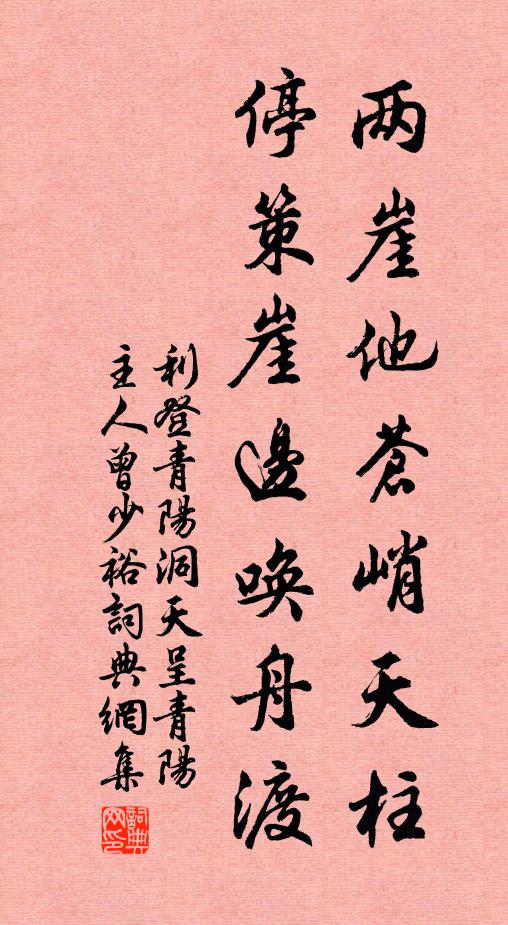 两崖他蒼峭天柱
停策崖邊唤舟渡
利登青陽洞天呈青陽
主人曾少裕詞典網集
詞典
网印